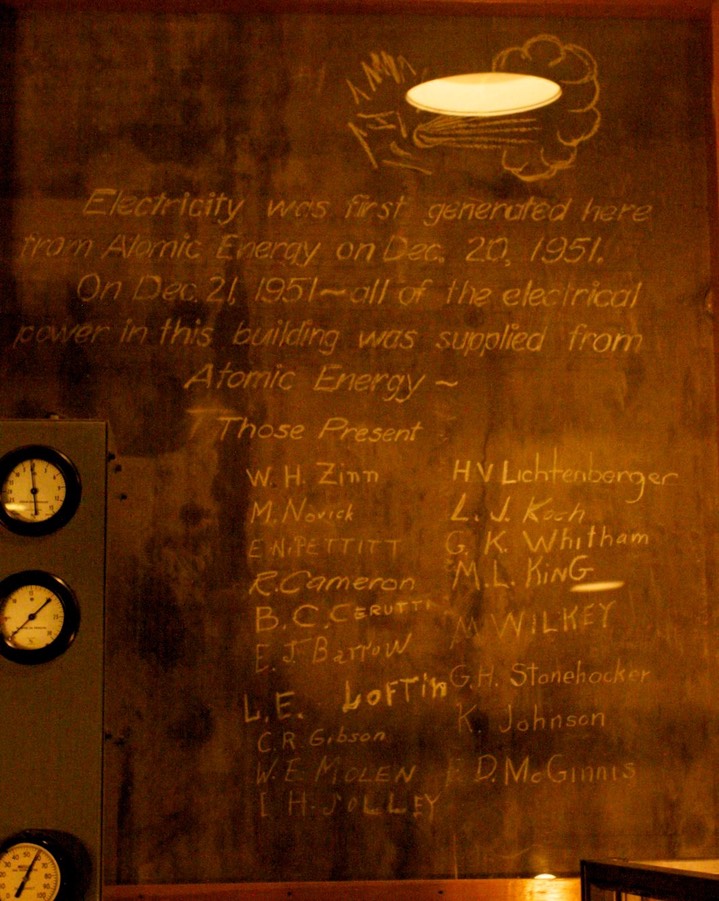 Electricity was first generated here
from Atomic Energy on Dec. 20, 1951.
On Dec. 21, 1951 — all of the electrical
power in this building was supplied from
Atomic Energy ~
Those Present
W. H. Zinn
M. Novick
E. N. PETTITT
R. Cameron
B. C. CERUTTI
E. J. Barrow
L. E. LOFTIn
C. R Gibson
W. E. MOLEN
H. JOLLEY
H V Lichtenberger
L. J. Koch
G. K. Whitham
M. L. KING
M WILKEY
G. H. Stonehocker
K. Johnson
D. McGinnis